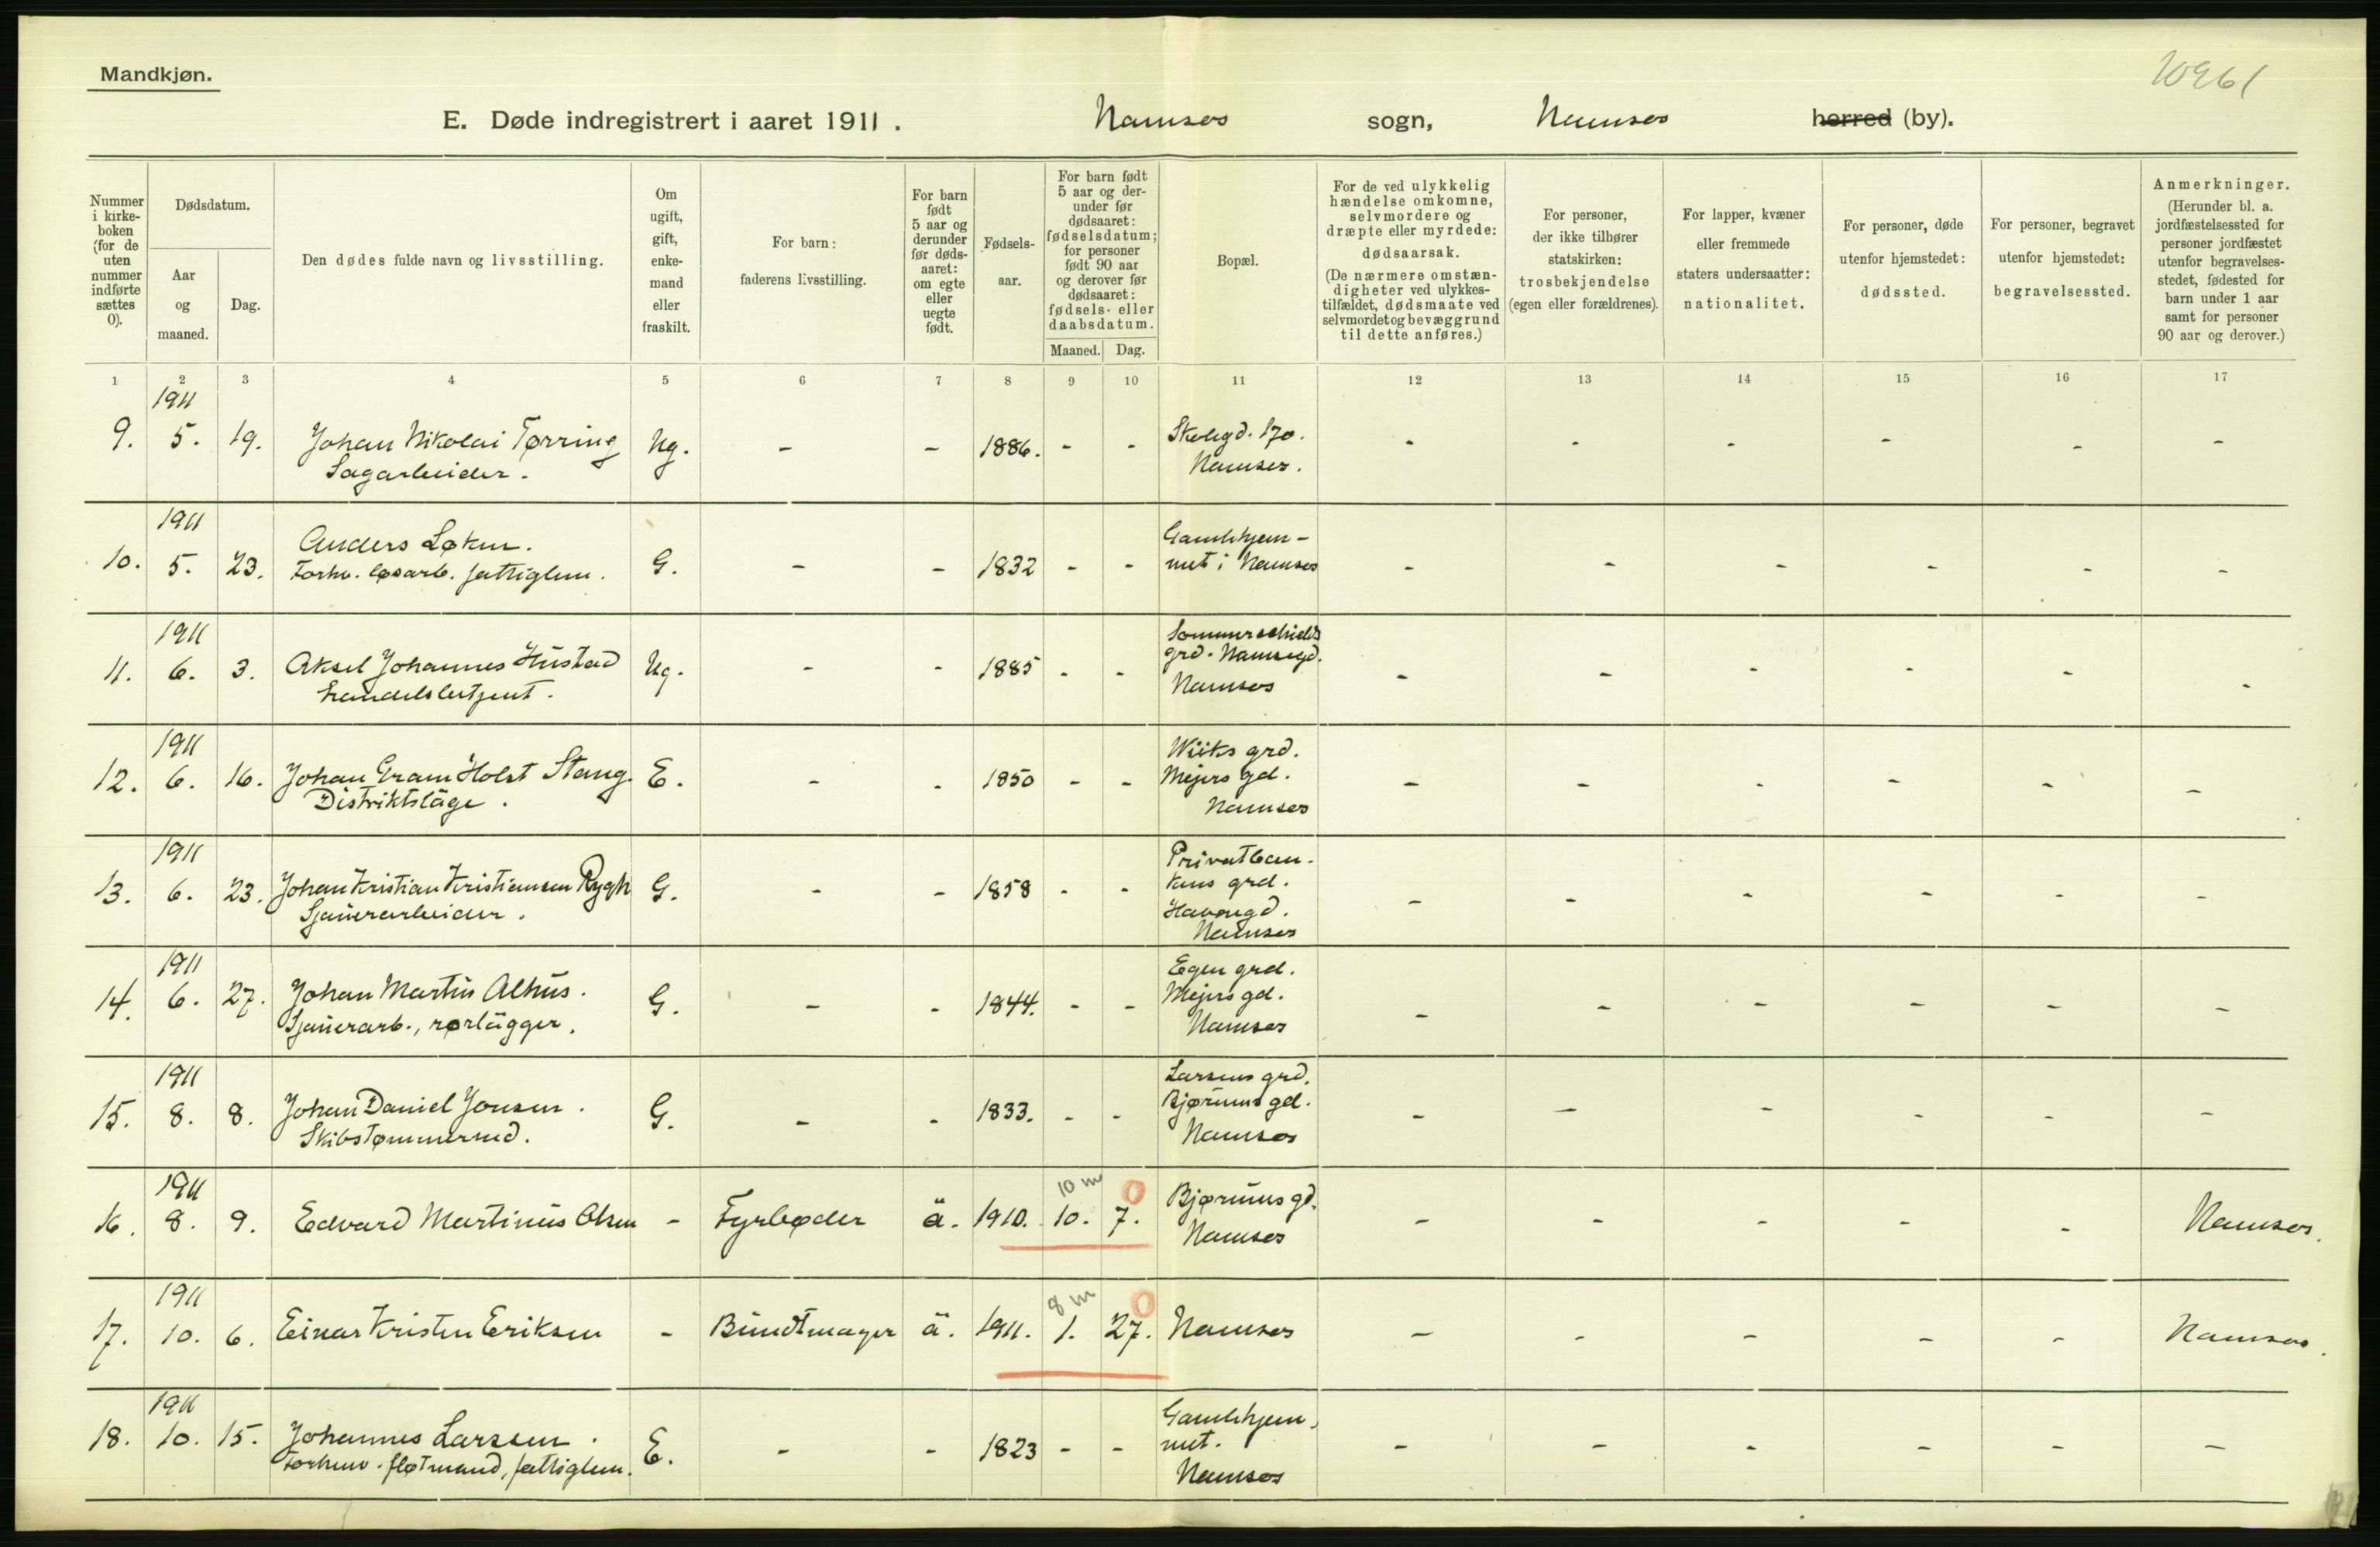 Mandkjøn.
10961
E. Døde indregistrert i aaret 1911. Namsos sogn, Namsos herred (by).
Nummer i kirke-boken (for de uten nummer indførte sættes 0).
Dødsdatum.
Aar og maaned.
Dag.
Den dødes fulde navn og livsstilling.
Om ugift, gift, enke-mand eller fraskilt.
For barn: faderens livsstilling.
For barn født 5 aar og derunder før døds-aaret: om egte eller uegte født.
Fødsels-aar.
For barn født 5 aar og der-under før dødsaaret: fødselsdatum; for personer født 90 aar og derover før dødsaaret: fødsels- eller daabsdatum.
Maaned. Dag.
Bopæl.
For de ved ulykkelig hændelse omkomne, selvmordere og dræpte eller myrdede: dødsaarsak. (De nærmere omstæn-digheter ved ulykkes-tilfældet, dødsmaate ved selvmordet og bevæggrund til dette anføres.)
For personer, der ikke tilhører statskirken: trosbekjendelse (egen eller forældrenes).
For lapper, kvæner eller fremmede staters undersaatter: nationalitet.
For personer, døde utenfor hjemstedet: dødssted.
For personer, begravet utenfor hjemstedet: begravelsessted.
Anmerkninger. (Herunder bl. a. jordfæstelsessted for personer jordfæstet utenfor begravelses-stedet, fødested for barn under 1 aar samt for personer 90 aar og derover.)
1 2 3 4 5 6 7 8 9 10 11 12 13 14 15 16 17
1911
9. 5. 19. Johan Nikolai Tørring Ug. - - 1886. - - Skolegd. 170. - - - - - -
Sagarbeider. Namsos.
1911
10. 5. 23. Anders Løken. G. - - 1832 - - Gamlehjem- - - - - - -
Forhv. løsarb. fattiglem. met i Namsos
1911
11. 6. 3. Aksel Johannes Hustad Ug. - - 1885 - - Sommerschields - - - - - -
handelsbetjent. grd. Namsegd.
Namsos
1911
12. 6. 16. Johan Gram Holst Stang. E. - - 1850 - - Wiiks grd. - - - - - -
Distriktsläge. Mejers gd.
Namsos
1911
13. 6. 23. Johan Kristian Kristiansen Rygh G. - - 1858 - - Privatban- - - - - - -
Sjauerarbeider. kens grd.
Havnegd.
Namsos
1911
14. 6. 27. Johan Martin Alhus. G. - - 1844. - - Egen grd. - - - - - -
Sjauerarb., rørlägger. Mejers gd.
Namsos
1911
15. 8. 8. Johan Daniel Jonsen. G. - - 1833. - - Larsens grd. - - - - - -
Skibstømmermd. Bjørums gd.
Namsos
1911 10 m 0
16. 8. 9. Edvard Martinus Olsen - Fyrbøder ä. 1910. 10. 7. Bjørums gd. - - - - - Namsos.
Namsos
1911 8 m 0
17. 10. 6. Einar Kristen Eriksen - Bundtmager ä. 1911. 1. 27. Namsos - - - - - Namsos.
1911
18. 10. 15. Johannes Larssen. E. - - 1823 - - Gamlehjem- - - - - - -
Forhenv. fløtmand, fattiglem. met.
Namsos